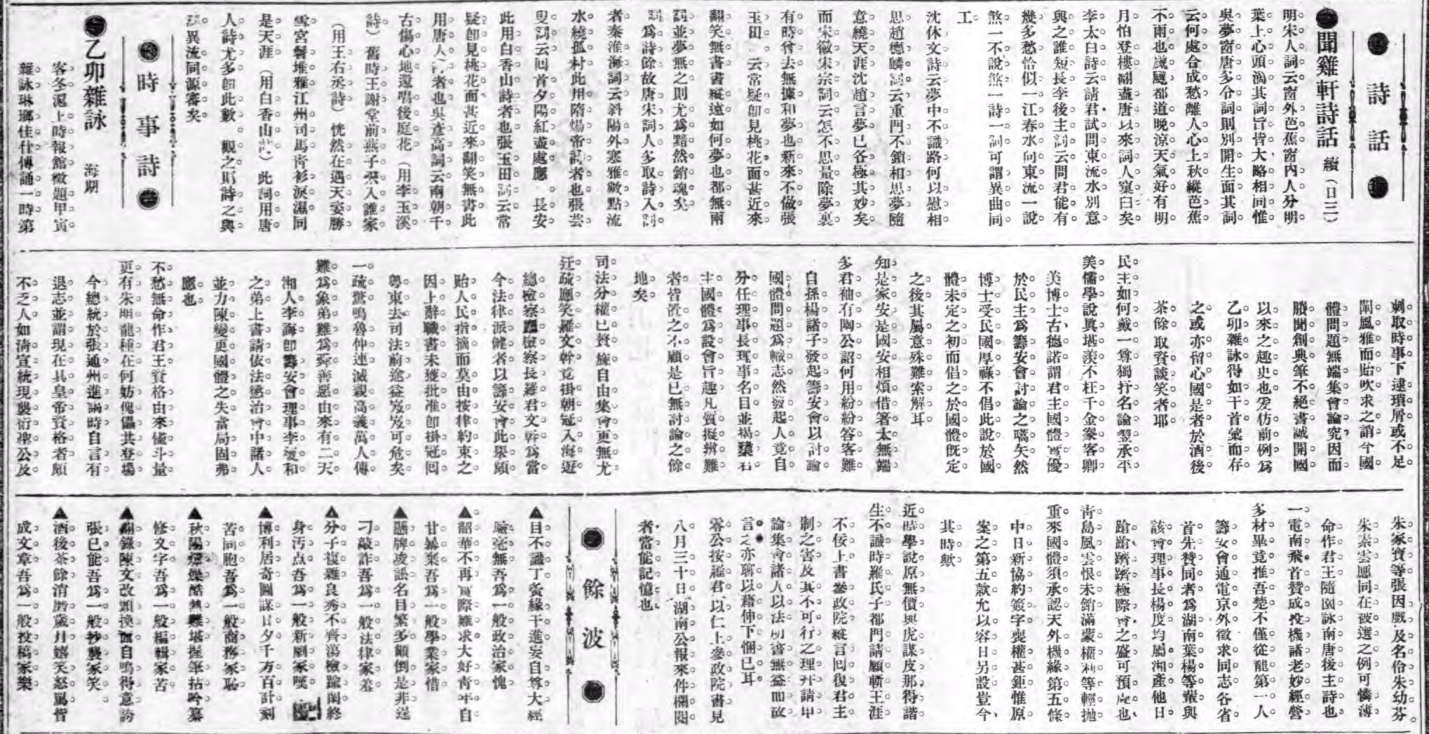 詩話
●聞雞軒詩話 續(日三)
明宋人詞云窗外芭蕉窗內人分明
葉上心頭滴其詞旨皆大略相同惟
吳夢窗唐多令詞則別開生面其詞
云何處合成愁離人心上秋縱芭蕉
不雨也颼颼都道晚涼天氣好有明
月怕登樓翻盡唐以來詞人窠臼矣
李太白詩云請君試問東流水別意
與之誰短長李後主詞云問君能有
幾多愁恰似一江春水向東流一說
煞一不說煞一詩一詞可謂異曲同
工
沈休文詩云夢中不識路何以慰相
思趙德麟詞云重門不鎖相思夢隨
意繞天涯沈趙言夢已各極其妙矣
而宋徽宗詞云怎不思量除夢裏
有時曾去無據和夢也新來不做張
玉田 云常疑卽見桃花面甚近來
翻笑無書書縱遠如何夢也都無兩
詞並夢無之則尤爲黯然銷魂矣
詞爲詩餘故唐宋詞人多取詩入詞
者秦淮海詞云斜陽外寒雅數點流
水繞孤村此用隋煬帝詩者也張芸
叟詞云回首夕陽紅盡處應 長安
此用白香山詩者也張玉田詞云常
疑卽見桃花面甚近來翻笑無書此
用唐人 者也吳彥高詞云南朝千
古傷心地還唱後庭花(用李玉溪
詩)舊時王謝堂前燕子飛入誰家
(用王右丞詩) 恍然在遇天姿勝
雪宮鬢堆雅江州司馬靑衫淚濕同
是天涯(用白香山 )此詞用唐
人詩尤多卽此數 觀之則詩之與
詞異流同源審矣
時事詩
●乙卯雜詠 海朔
客冬滬上時報館徵題甲寅
雜詠琳瑯佳什傳誦一時第
剌取時事下逮瑣屑或不足
闡風雅而貽吹求之誚今國
體問題無端集會論究因而
騰聞創典筆不絕書誠開國
以來之趣史也爰仿前例爲
乙卯雜詠得如干首彙而存
之或亦留心國是者於酒後
茶餘取資談笑者耶
民主如何戴一尊獨抒名論翌承平
美儒學說異堪羨不枉千金豢客卿
美博士古德諾謂君主國體 優
於民主爲籌安會討論之嚆矢然
博士受民國厚祿不倡此說於國
體未定之初而倡之於國體旣定
之後其屬意殊難索解耳
知是家安是國安相煩借箸太無端
多君袖有陶公詔何用紛紛答客難
自孫楊諸子發起籌安會以討論
國體問題爲幟志然發起人竟自
分任理事長理事名目並揭櫫君
主國體爲設會旨趣凡質擬辨難
者皆置之不顧是已無討論之餘
地矣
司法分權已贅旒自由集會更無尤
迂疏應笑羅文幹竟掛朝冠入海遊
總檢察廳檢察長羅君文幹爲當
今法律派健者以籌安會此渠頗
貽人民指摘而莫由按律約束之
因上辭職書未獲批准卽掛冠回
粵東去司法前途益岌岌可危矣
一疏驚鳴魯仲連滅親高義萬人傳
難爲象弟難爲舜善惡由來有二天
湘人李誨卽籌安會理事李燮和
之弟上書請依法懲治會中諸人
並力陳變更國體之失當局固弗
應也
不愁無命作君王資格由來懂斗量
更有朱明龍種在何妨傀儡共登場
今總統於張通州進謁時自言有
退志並謂現在具皇帝資格者頗
不乏人如淸宣統現襲衍聖公及
朱家寶等張因戲及名伶朱幼芬
朱素雲應同在被選之例可憐薄
命作君王隨園詠南唐後主詩也
一電南飛首贊成投機諸老妙經營
多材畢竟推吾楚不僅從龍第一人
籌安會通電京外徵求同志各省
首先贊同者爲湖南葉楊等輩與
該會理事長楊度均屬湘產他日
蹌蹌躋躋極際會之盛可預 也
靑島風雲恨未銷滿蒙權利等輕拋
重來國體須承認天外機緣第五條
中日新協約簽字喪權甚鉅惟原
案之第五款允以容日另設豈今
其時歟
近時學說原無價與虎謀皮那得諧
生不識時羅氏子都門請願斬王涯
不佞上書參政院縱言回復君主
制之害及其不可行之理幷請申
論集會諸人以法明書無益而故
言之亦聊以藉伸下悃已耳
霽公按羅君以仁上參政院書見
八月三十日湖南公報來件欄閱
者當能記憶也
餘波
▲目不識丁 緣干進妄自尊大經
驗毫無吾爲一般政治家愧
▲韶華不再實際難求大好靑年自
甘暴棄吾爲一般學業家惜
▲懸牌凌謠名目繁多顚倒是非逞
刁敲詐吾爲一般法律家羞
▲分子複雜良莠不齊蕩檢踰閑終
身汚点吾爲一般新劇家嘆
▲博利居奇圖謀日夕千方百計剝
苦同胞吾爲一般商務家恥
▲秋陽 燥酷熱難堪握筆拈吟纂
修文字吾爲一般編輯家苦
▲翻錄陳文改頭換面自鳴得意誇
張已能吾爲一般抄襲家笑
▲酒後茶餘消磨歲月嬉笑怒罵皆
成文章吾爲一般投稿家樂